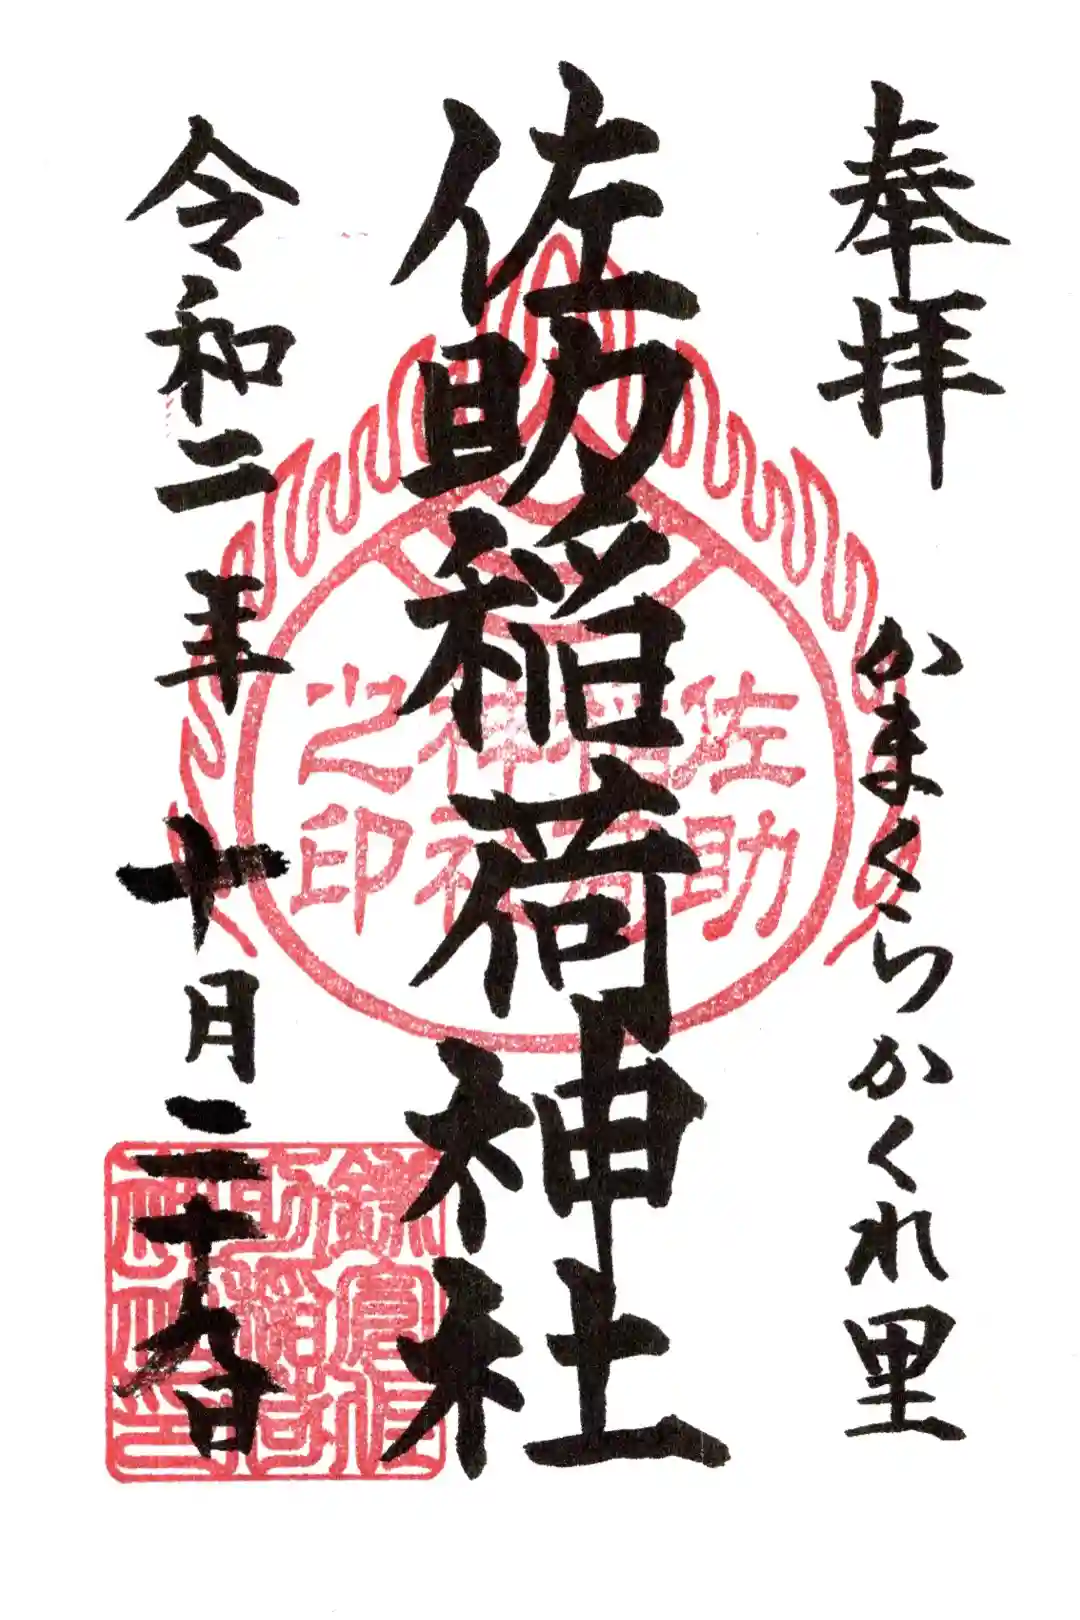 奉拝
かまくらかくれ里
佐助稲荷神社
令和二年十月二十九日
佐助
稲荷
神社
之印
鎌倉佐
助稲荷